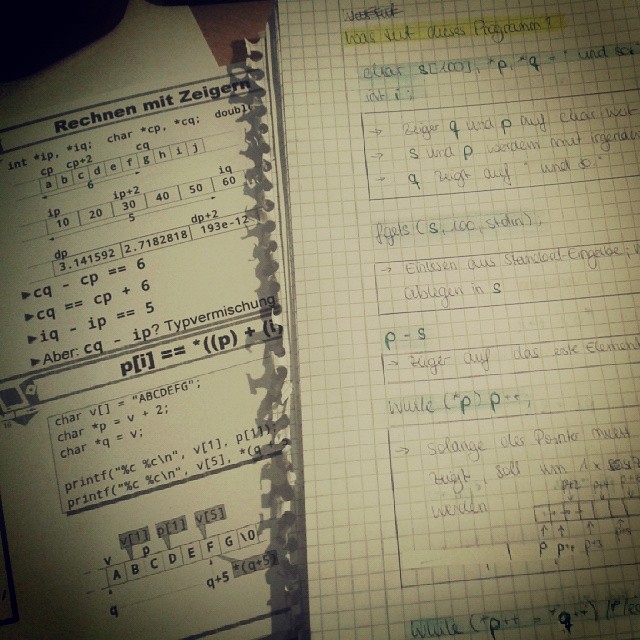 Rechnen mit Zeigern
int *ip, *iq; char *cp, *cq; doubl
cp cp+2 cq
a b c d e f g h i j
6
ip ip+2 iq
10 20 30 40 50 60
5
dp dp+2
3.141592 2.7182818 193e-12
▶cq - cp == 6
▶cq == cp + 6
▶iq - ip == 5
▶Aber: cq - ip? Typvermischung
p[i] == *((p) + (i
char v[] = "ABCDEFG";
char *p = v + 2;
char *q = v;
printf("%c %c\n", v[1], p[1]);
printf("%c %c\n", v[5], *(q
v[1] p[1] v[5]
v p
A B C D E F G \0
q q+5 *(q+5)
was tut dieses Programm?
char s[100], *p, *q = " und so
int i;
→ Zeiger q und p auf char
→ s und p werden mit irgende
→ q zeigt auf " und so "
fgets(s, 100, stdin);
→ Einlesen aus Standard-Eingabe;
ablegen in s
p = s
→ Zeiger auf das erste Element
while (*p) p++;
→ Solange der Pointer
zeigt, soll um 1x
werden
p p++
while (*p++ = *q++)